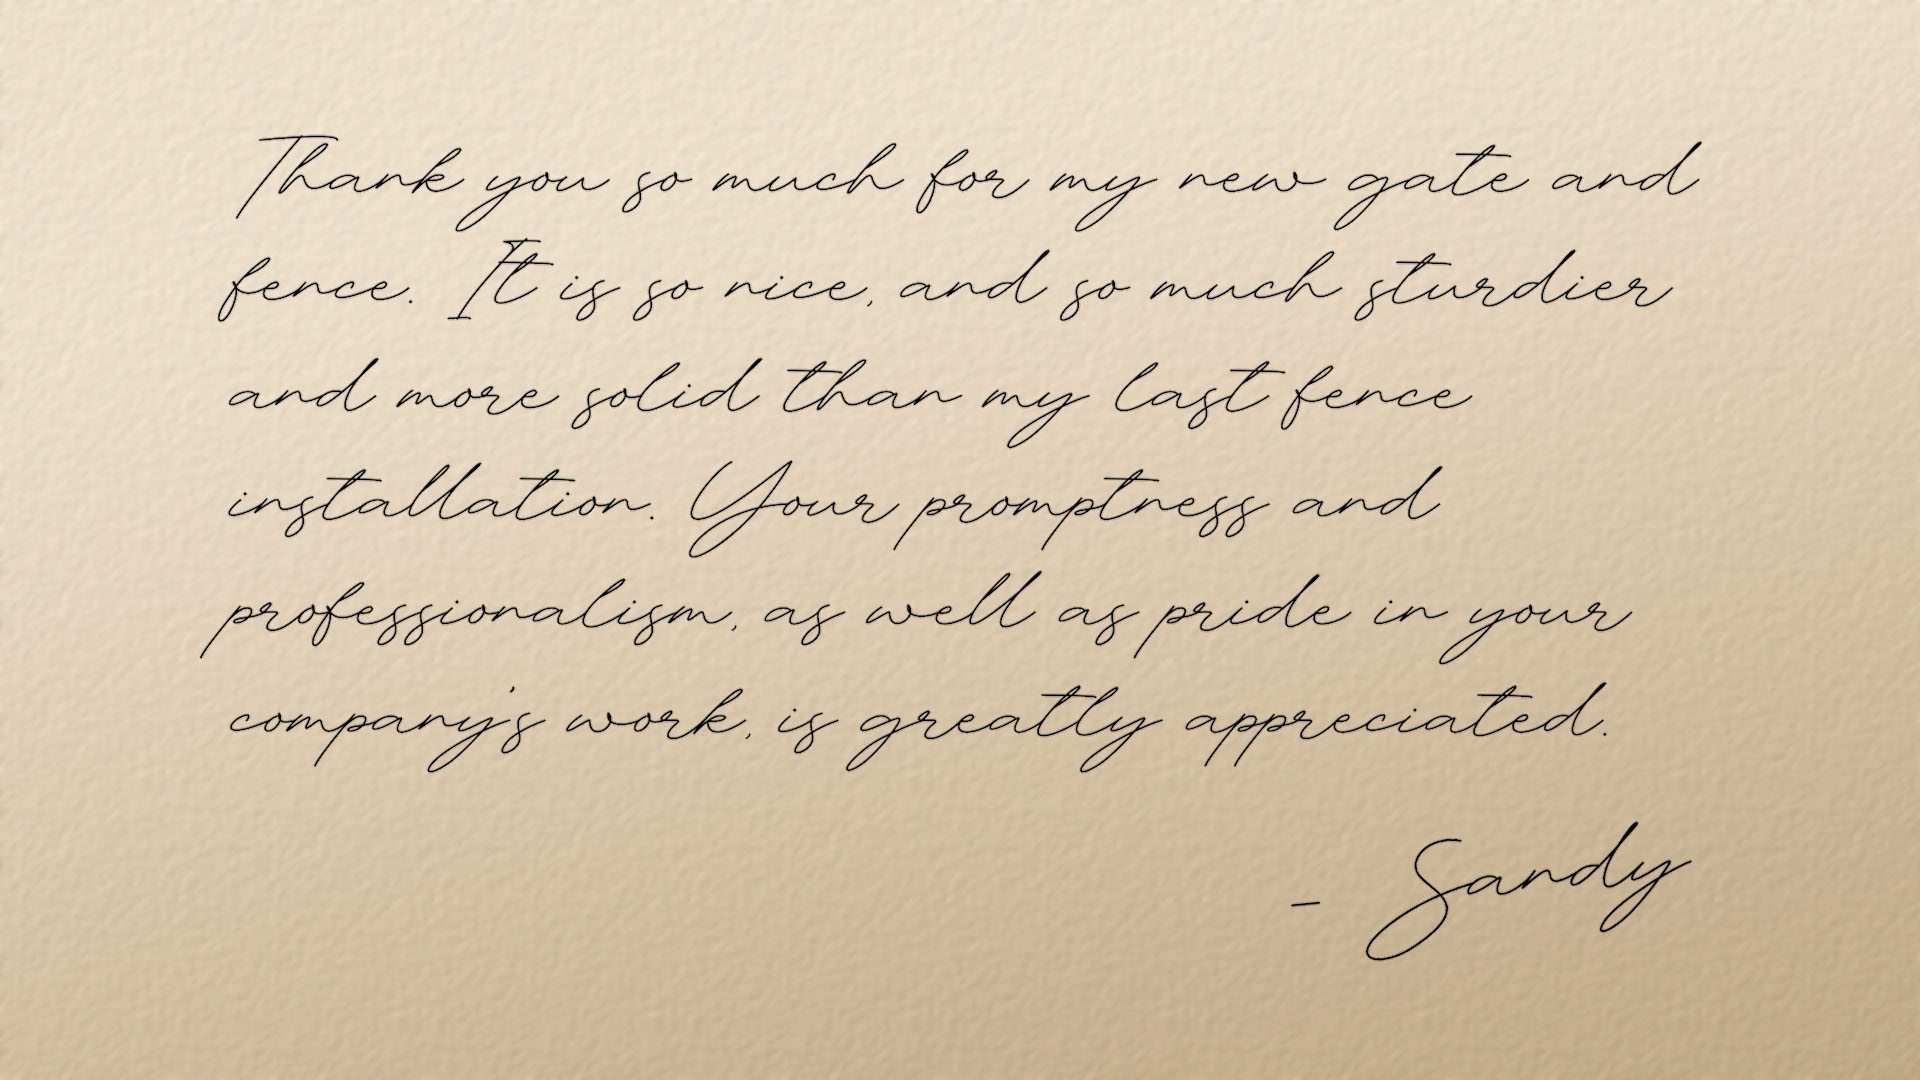 Thank you so much for my new gate and
fence. It is so nice, and so much sturdier
and more solid than my last fence
installation. Your promptness and
professionalism, as well as pride in your
company's work, is greatly appreciated.
- Sandy